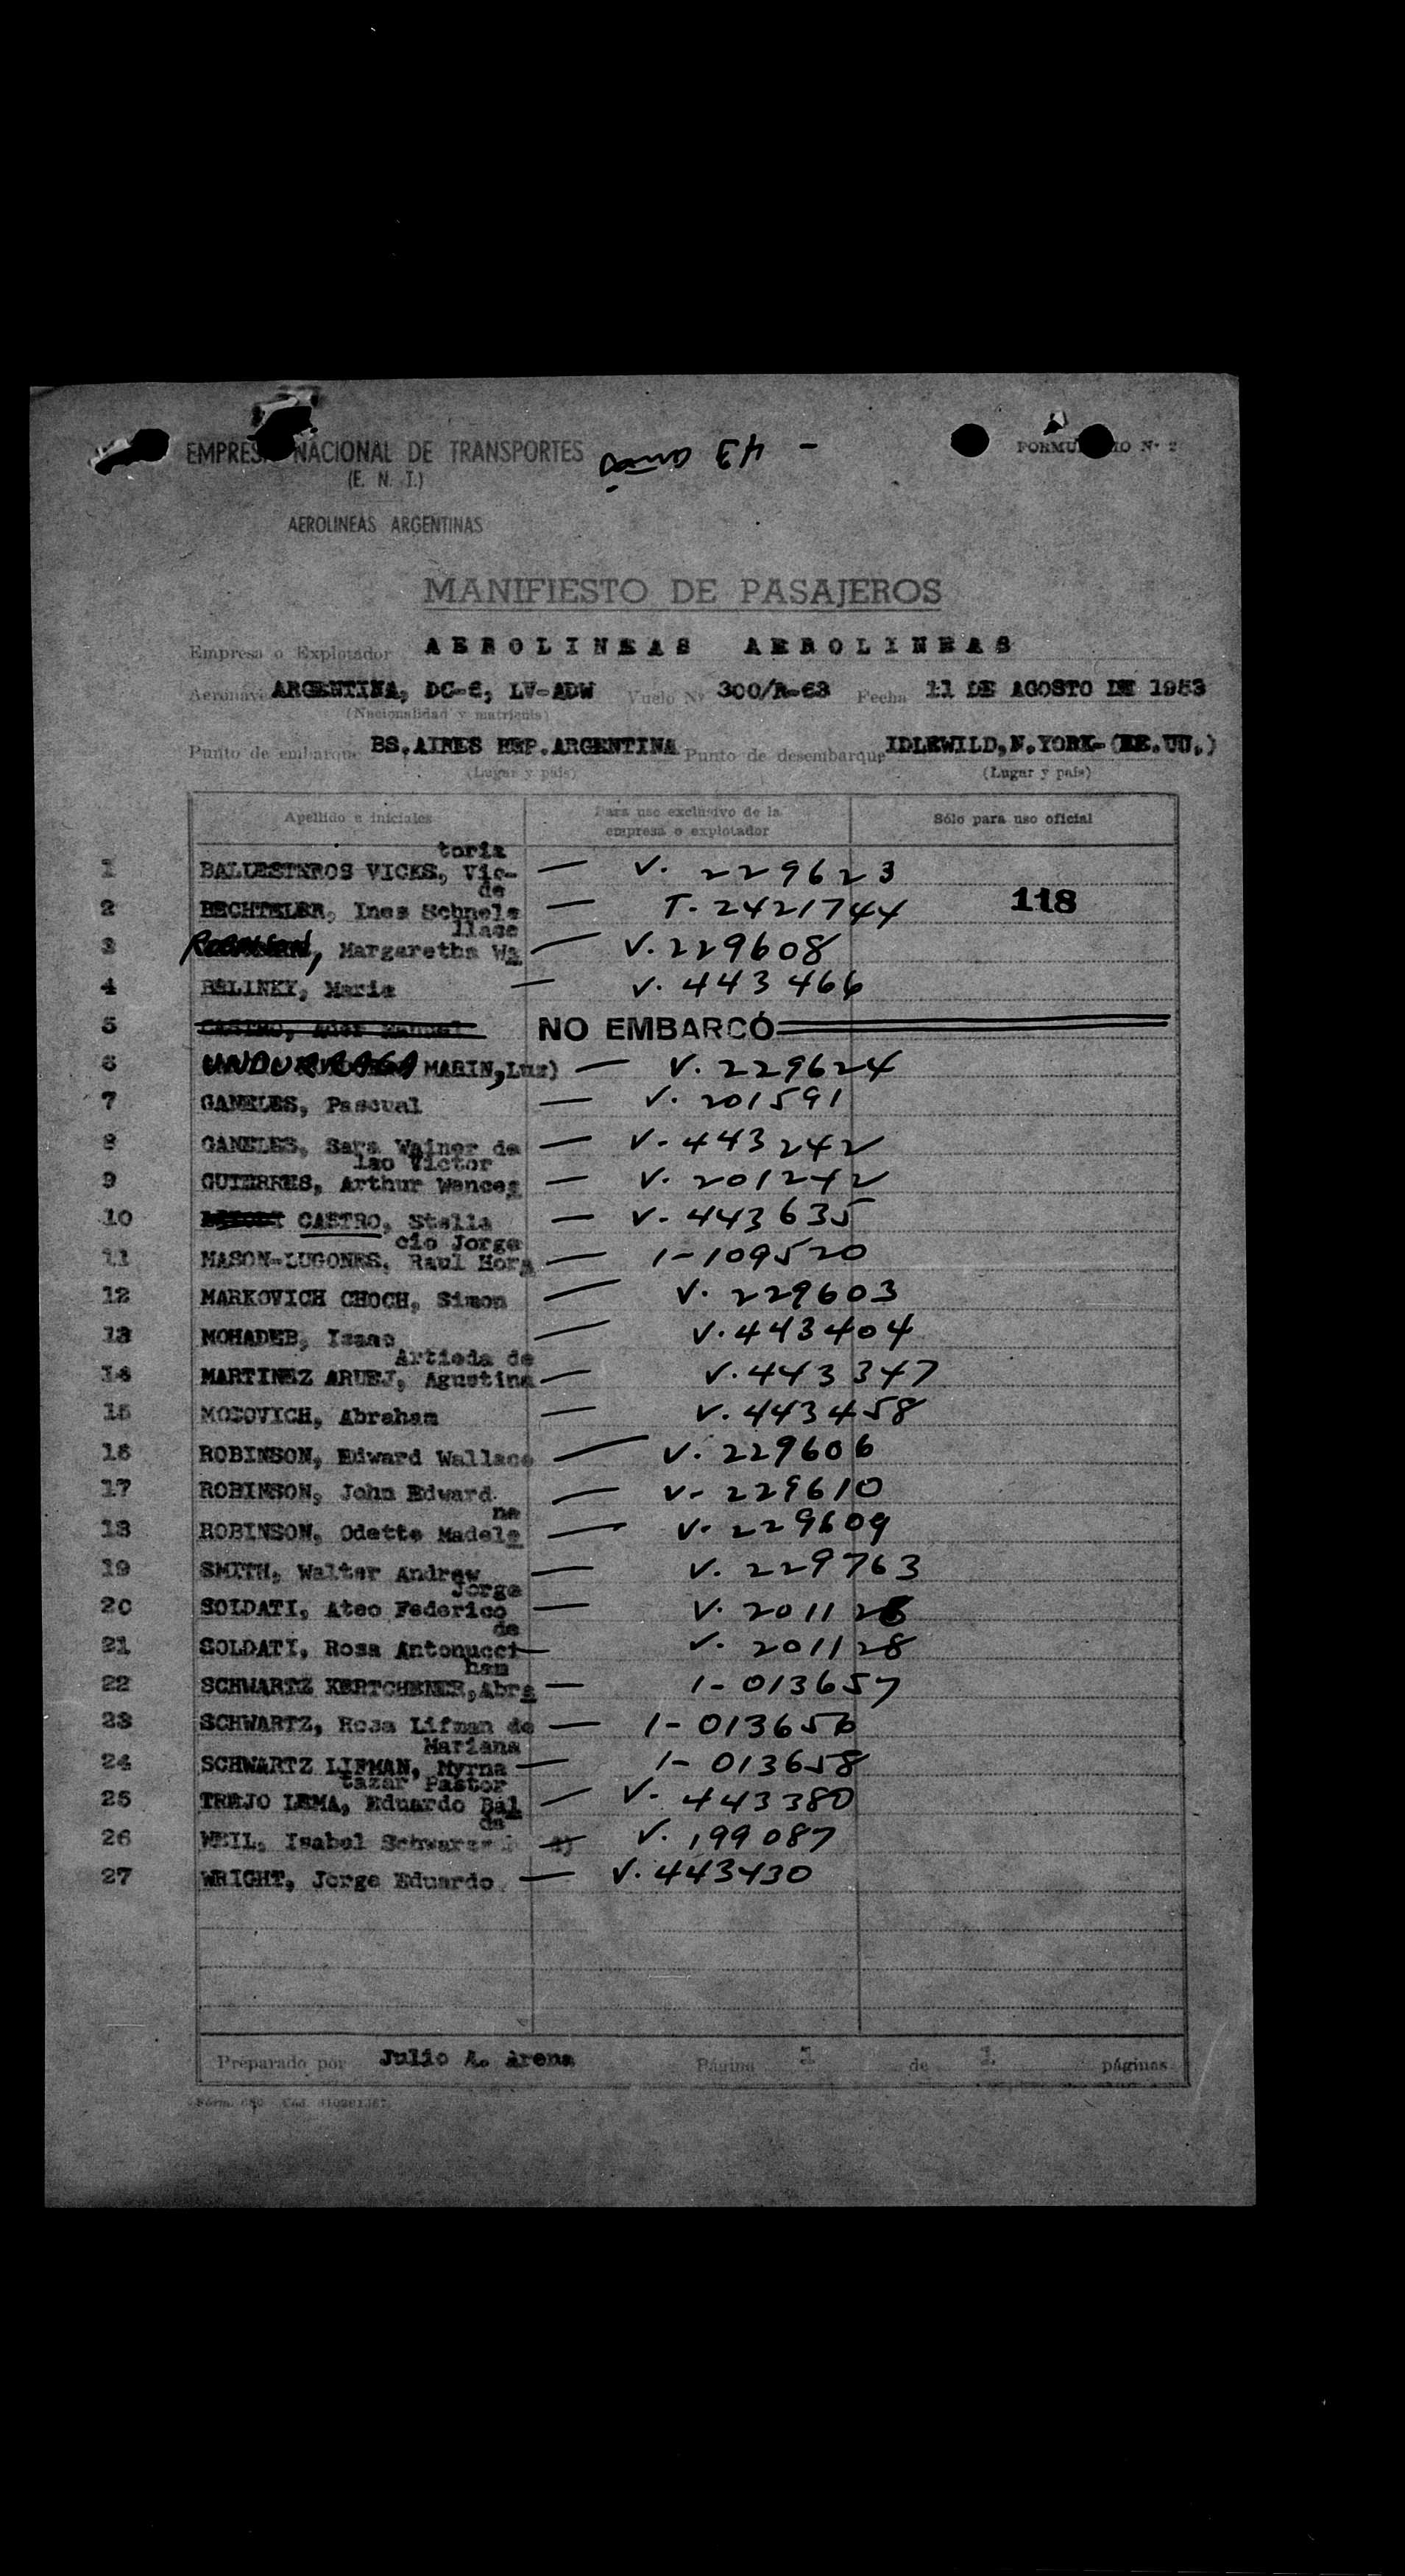 EMPRES NACIONAL DE TRANSPORTES
(E. N. T.)
AEROLINEAS ARGENTINAS
- 43
FORMU IO Nº 2
MANIFIESTO DE PASAJEROS
Empresa o Explotador AEROLINEAS AEROLINEAS
Aeronave ARGENTINA, DC-6, LV-ADW Vuelo Nº 300/R-63 Fecha 11 DE AGOSTO DE 1953
(Nacionalidad y matrícula)
Punto de embarque BS.AIRES REP.ARGENTINA Punto de desembarque IDLEWILD,N.YORK-(EE.UU.)
(Lugar y país) (Lugar y país)
Apellido e iniciales Para uso exclusivo de la empresa o explotador Sólo para uso oficial
toria
1 BALLESTEROS VICKS, Vic- — V. 229623
de
2 BECHTELER, Ines Schnele — T-2421744 118
llace
3 Robinson, Margaretha Wa — V.229608
4 BELINKY, Maria — V. 443466
5 NO EMBARCÓ
6 UNDURRAGA MARIN,Luz) — V. 229624
7 GANELES, Pascual — V. 201591
8 GANELES, Sara Wainer de — V-443242
lao Victor
9 GUTERRES, Arthur Wences — V. 201242
10 CASTRO, Stella — V-443635
cio Jorge
11 MASON-LUGONES, Raul Hora — 1-109520
12 MARKOVICH CHOCH, Simon — V. 229603
13 MOHADEB, Isaac — V.443404
Artieda de
14 MARTINEZ ARUEJ, Agustina — V.443347
15 MOSOVICH, Abraham — V.443458
16 ROBINSON, Edward Wallace — V. 229606
17 ROBINSON, John Edward — V- 229610
ne
18 ROBINSON, Odette Madele — V. 229609
19 SMITH, Walter Andrew — V. 229763
Jorge
20 SOLDATI, Ateo Federico — V. 2011
de
21 SOLDATI, Rosa Antonucci — V. 201128
ham
22 SCHWARTZ KERTCHENER,Abra — 1-013657
23 SCHWARTZ, Rosa Lifman de — 1-013656
Mariana
24 SCHWARTZ LIFMAN, Myrna — 1-013658
tazar Pastor
25 TREJO LEMA, Eduardo Bal — V. 443380
de
26 WEIL, Isabel Schwarz — V. 199087
27 WRIGHT, Jorge Eduardo — V.443430
Preparado por Julio A. Arena Página 1 de 1 páginas